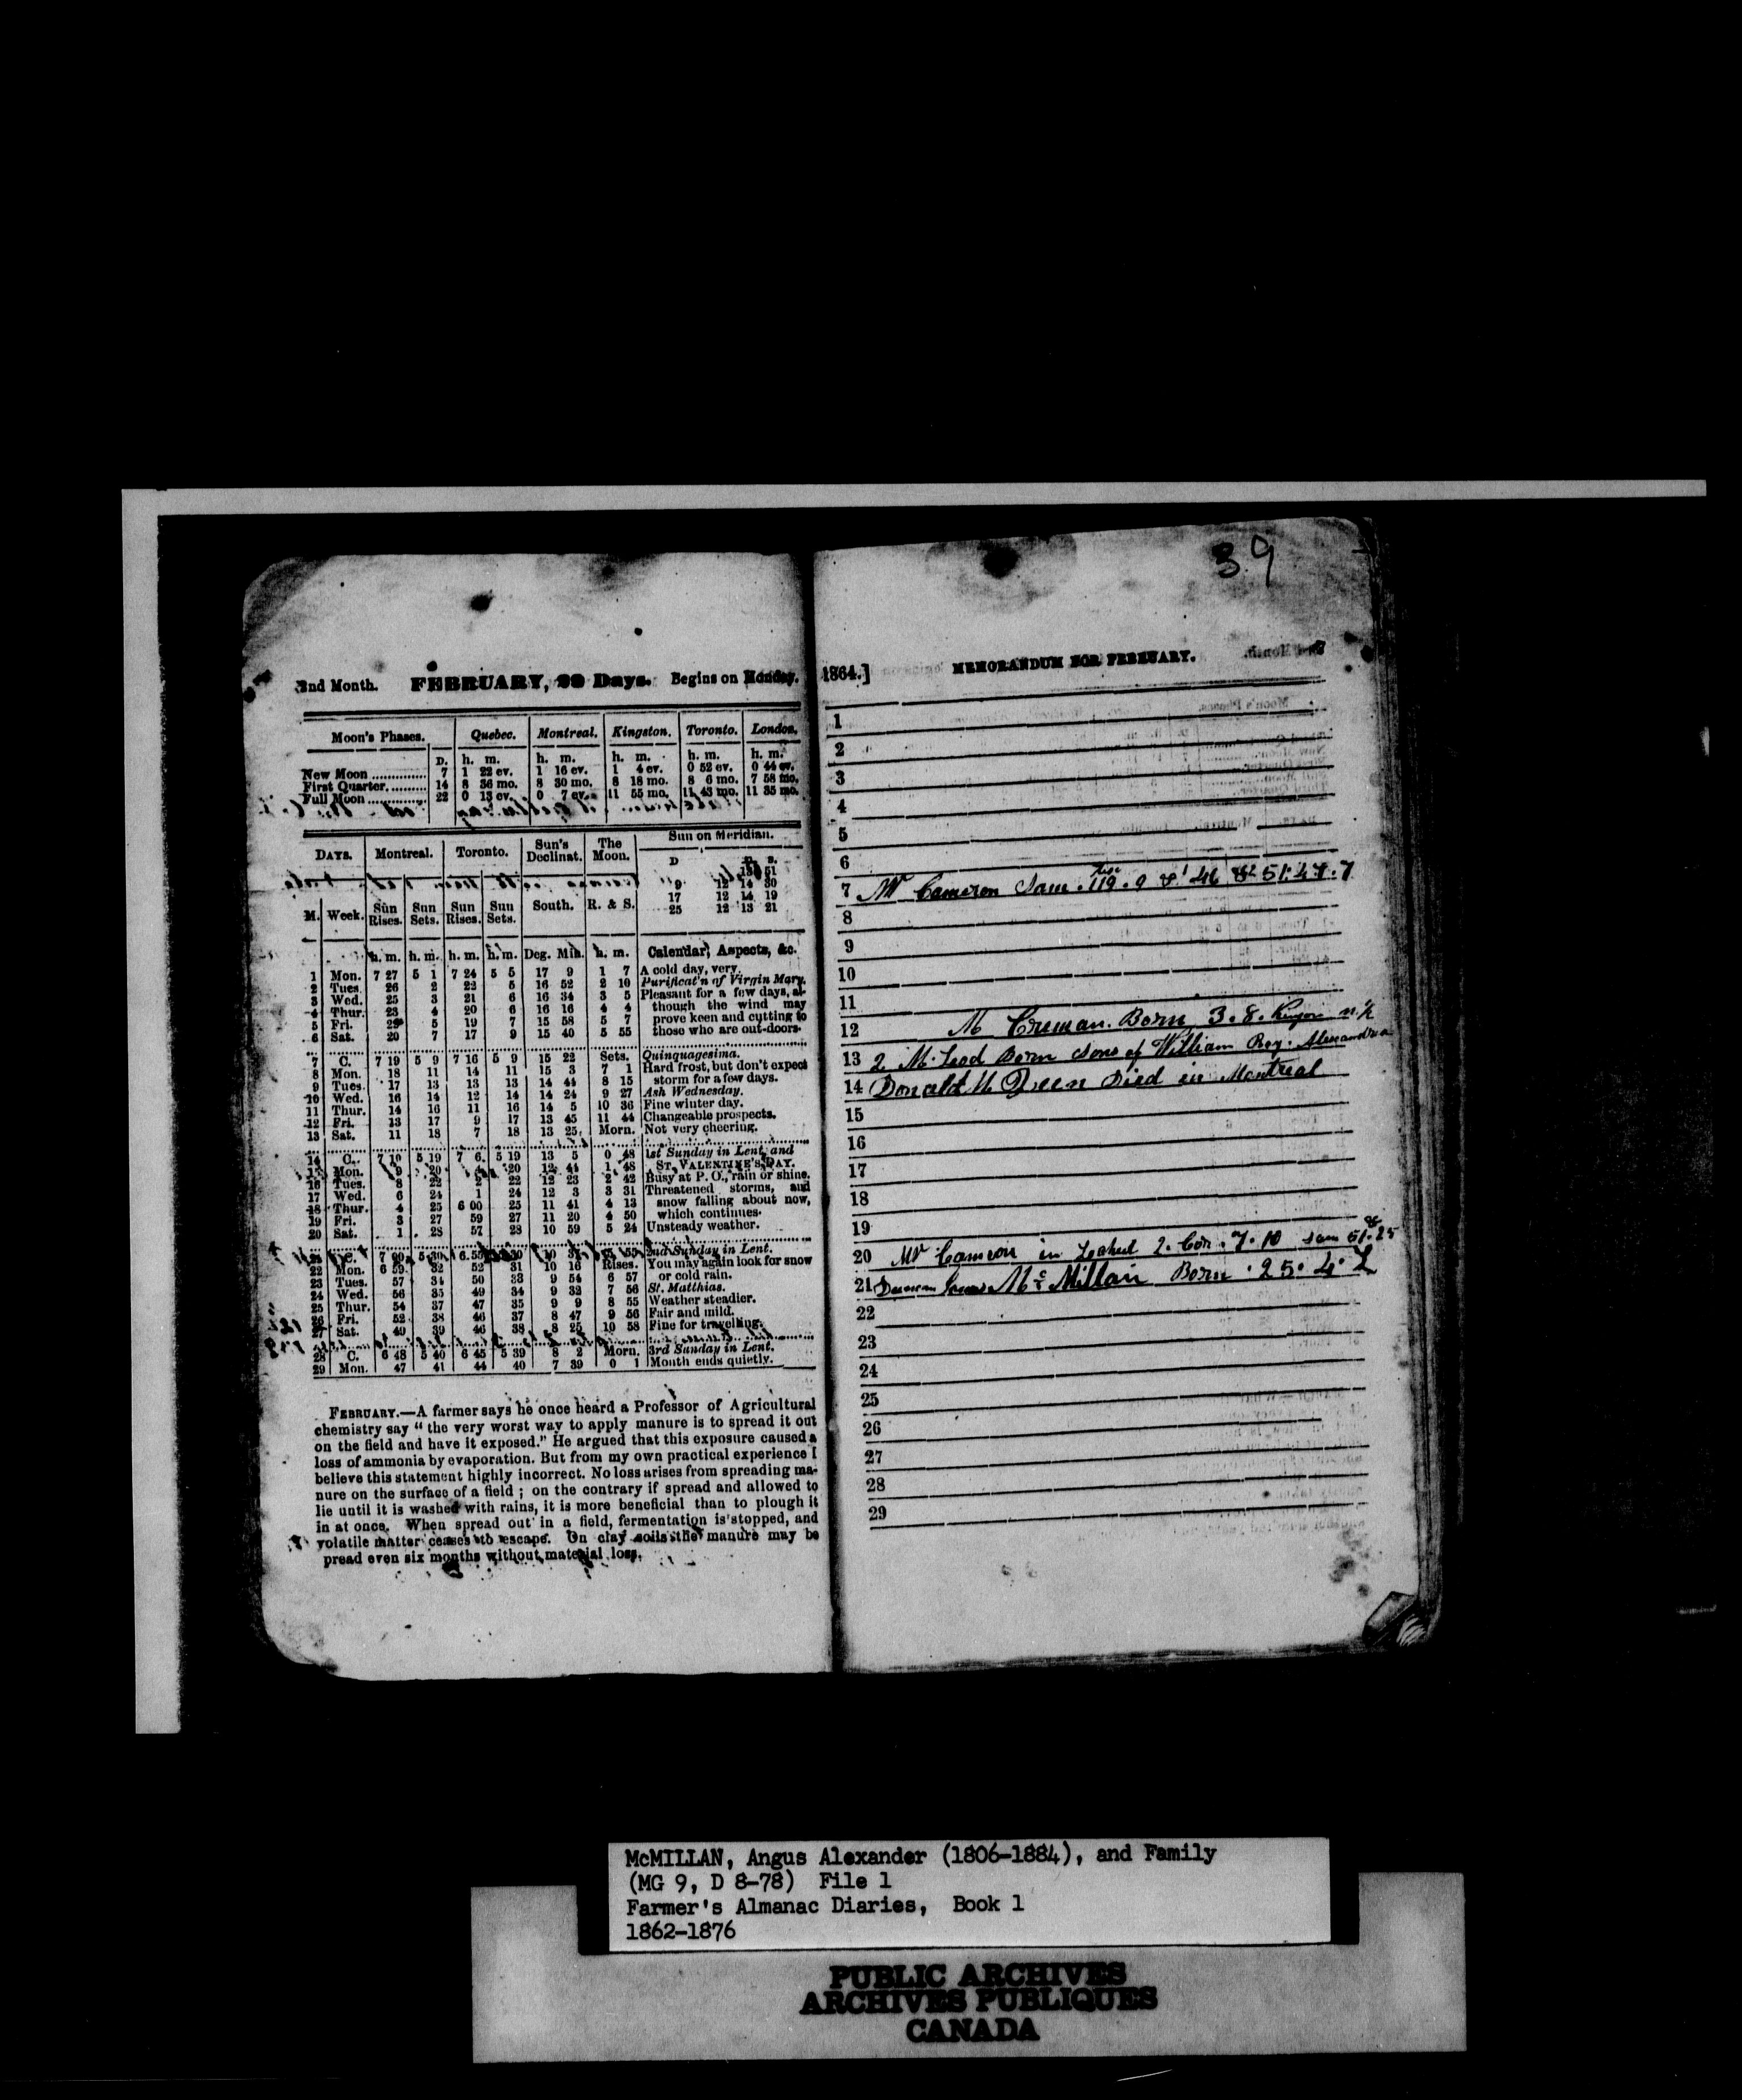 2nd Month. FEBRUARY, 29 Days. Begins on Monday.
Moon's Phases. Quebec. Montreal. Kingston. Toronto. London.
D. h. m. h. m. h. m. h. m. h. m.
New Moon .............. 7 1 22 ev. 1 16 ev. 1 4 ev. 0 52 ev. 0 44 ev.
First Quarter.......... 14 8 36 mo. 8 30 mo. 8 18 mo. 8 6 mo. 7 58 mo.
Full Moon .............. 22 0 13 ev. 0 7 ev. 11 55 mo. 11 43 mo. 11 35 mo.
DAYS. Montreal. Toronto. Sun's Declinat. The Moon. Sun on Meridian.
D
9 12 14 30
17 12 14 19
25 12 13 21
M. Week. Sun Rises. Sun Sets. Sun Rises. Sun Sets. South. R. & S.
h. m. h. m. h. m. h. m. Deg. Min. h. m. Calendar, Aspects, &c.
1 Mon. 7 27 5 1 7 24 5 5 17 9 1 7 A cold day, very.
2 Tues. 26 2 22 5 16 52 2 10 Purificat'n of Virgin Mary.
3 Wed. 25 3 21 6 16 34 3 5 Pleasant for a few days, al-
4 Thur. 23 4 20 6 16 16 4 4 though the wind may
5 Fri. 22 5 19 7 15 58 5 7 prove keen and cutting to
6 Sat. 20 7 17 9 15 40 5 55 those who are out-doors.
7 C. 7 19 5 9 7 16 5 9 15 22 Sets. Quinquagesima.
8 Mon. 18 11 14 11 15 3 7 1 Hard frost, but don't expect
9 Tues. 17 13 13 13 14 44 8 15 storm for a few days.
10 Wed. 16 14 12 14 14 24 9 27 Ash Wednesday.
11 Thur. 14 16 11 16 14 5 10 36 Fine winter day.
12 Fri. 13 17 9 17 13 45 11 44 Changeable prospects.
13 Sat. 11 18 7 18 13 25 Morn. Not very cheering.
14 C. 7 10 5 19 7 6 5 19 13 5 0 48 1st Sunday in Lent, and
15 Mon. 9 20 20 12 44 1 48 ST. VALENTINE'S DAY.
16 Tues. 8 22 2 22 12 23 2 42 Busy at P. O., rain or shine.
17 Wed. 6 24 1 24 12 3 3 31 Threatened storms, and
18 Thur. 4 25 6 00 25 11 41 4 13 snow falling about now,
19 Fri. 3 27 59 27 11 20 4 50 which continues.
20 Sat. 1 28 57 28 10 59 5 24 Unsteady weather.
21 C. 7 00 5 30 6 55 2nd Sunday in Lent.
22 Mon. 6 59 32 52 31 10 16 Rises. You may again look for snow
23 Tues. 57 34 50 33 9 54 6 57 or cold rain.
24 Wed. 56 35 49 34 9 32 7 56 St. Matthias.
25 Thur. 54 37 47 35 9 9 8 55 Weather steadier.
26 Fri. 52 38 46 37 8 47 9 56 Fair and mild.
27 Sat. 49 39 46 38 8 25 10 58 Fine for travelling.
28 C. 6 48 5 40 6 45 5 39 8 2 Morn. 3rd Sunday in Lent.
29 Mon. 47 41 44 40 7 39 0 1 Month ends quietly.
FEBRUARY.—A farmer says he once heard a Professor of Agricultural
chemistry say "the very worst way to apply manure is to spread it out
on the field and have it exposed." He argued that this exposure caused a
loss of ammonia by evaporation. But from my own practical experience I
believe this statement highly incorrect. No loss arises from spreading ma-
nure on the surface of a field ; on the contrary if spread and allowed to
lie until it is washed with rains, it is more beneficial than to plough it
in at once. When spread out in a field, fermentation is stopped, and
volatile matter ceases to escape. On clay soils the manure may be
pread even six months without material loss.
39
1864.] MEMORANDUM FOR FEBRUARY.
1
2
3
4
5
6
7 Mr Cameron Sam. 119. 9 & 46 & 51. 47. 7
8
9
10
11
12 Mc Criman. Born 3. 8. Kenyon n. ½
13 2 Mc Leod Born Sons of William Roy. Alexandria
14 Donald Mc Queen Died in Montreal
15
16
17
18
19
20 Mr Cameron in 2. Cor. 7. 10 Sam 51. 25
21 Duncan Mc Millan Born 25. 4. L
22
23
24
25
26
27
28
29
McMILLAN, Angus Alexander (1806-1884), and Family
(MG 9, D 8-78) File 1
Farmer's Almanac Diaries, Book 1
1862-1876
PUBLIC ARCHIVES
ARCHIVES PUBLIQUES
CANADA